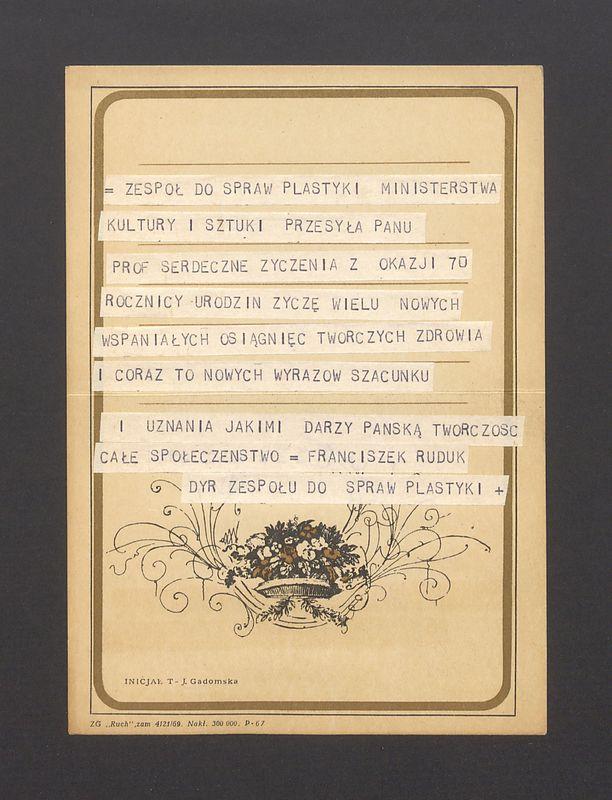 = ZESPOŁ DO SPRAW PLASTYKI MINISTERSTWA
KULTURY I SZTUKI PRZESYŁA PANU
PROF SERDECZNE ZYCZENIA Z OKAZJI 70
ROCZNICY URODZIN ZYCZĘ WIELU NOWYCH
WSPANIAŁYCH OSIĄGNIĘC TWORCZYCH ZDROWIA
I CORAZ TO NOWYCH WYRAZOW SZACUNKU
I UZNANIA JAKIMI DARZY PANSKĄ TWORCZOSC
CAŁE SPOŁECZENSTWO = FRANCISZEK RUDUK
DYR ZESPOŁU DO SPRAW PLASTYKI +
INICJAŁ T - J. Gadomska
ZG „Ruch", zam 4121/69. Nakł. 300 000. P-67